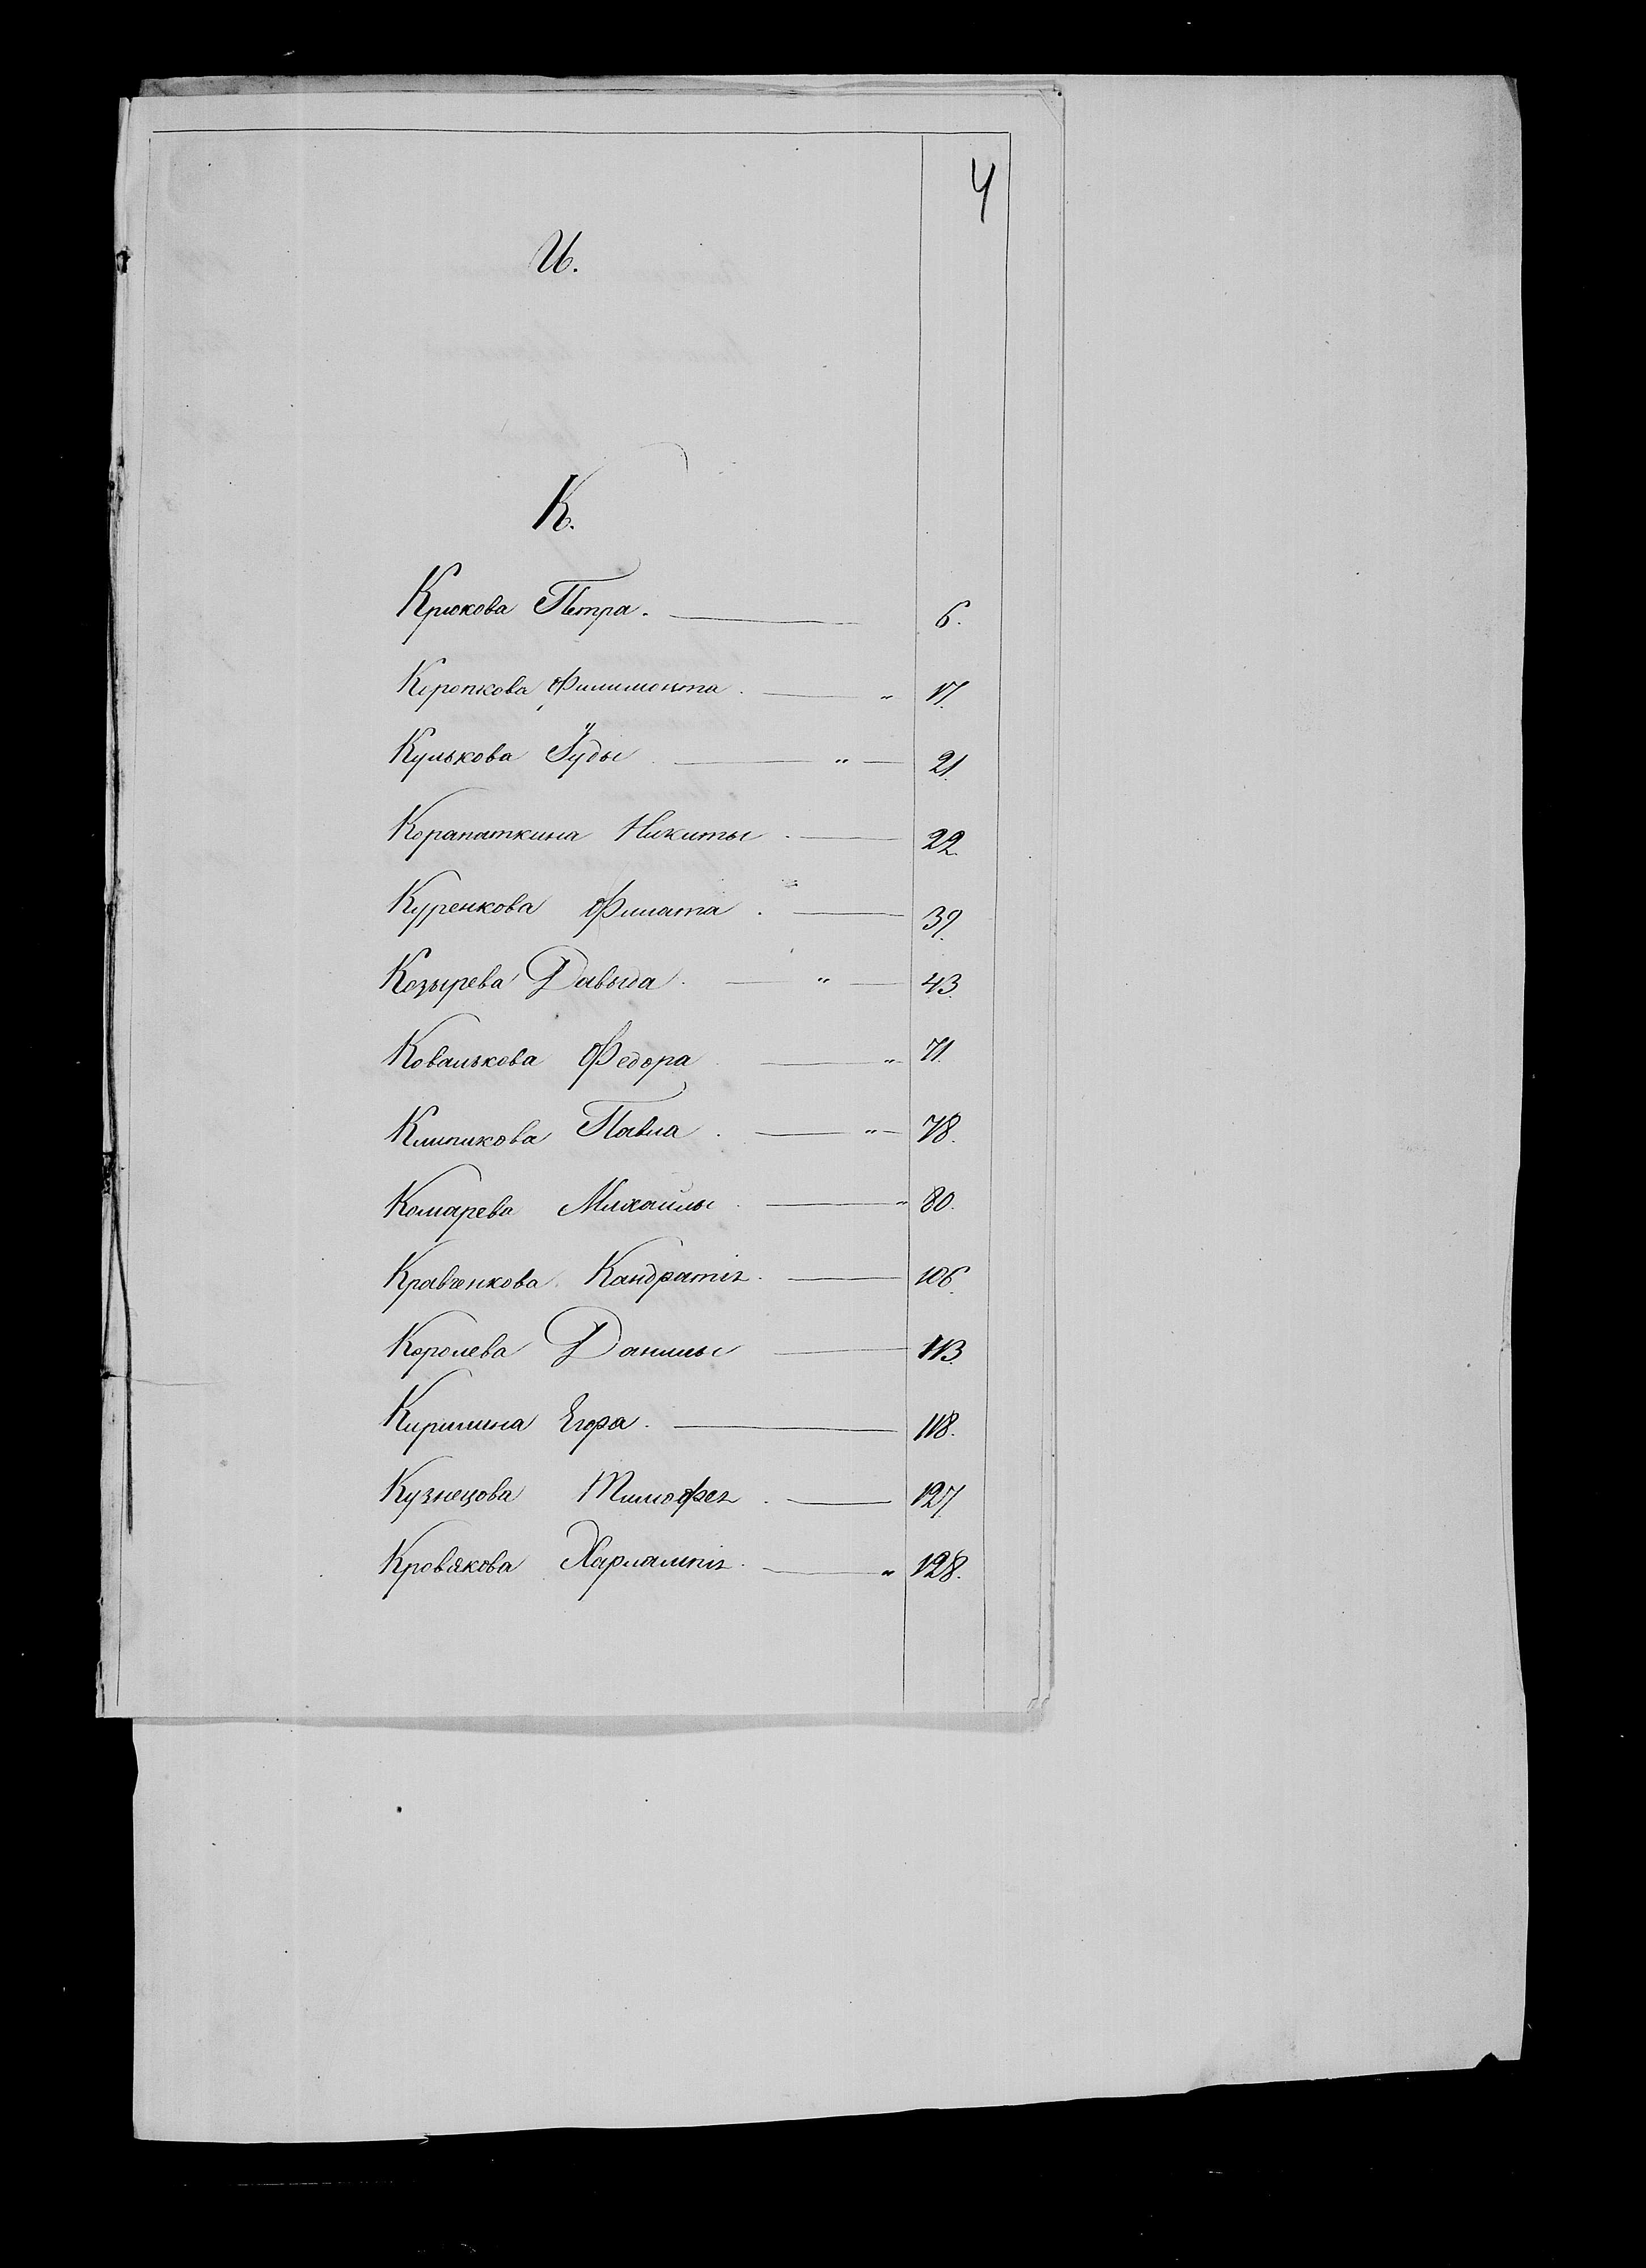 4
И.
К.
Крюкова Петра. 6.
Коропкова Филимонта. " 17.
Кулькова Іуды. " 21.
Корапаткина Никиты. 22.
Куренкова Филата. 39.
Козырева Давыда. " 43.
Ковалькова Федора. " 71.
Клипикова Павла. " 78.
Комарева Михайлы. " 80.
Кравченкова Кандратія. 106.
Королева Данилы 113.
Кирилина Егора. 118.
Кузнецова Тимофея. 127.
Кровякова Харлампія. " 128.